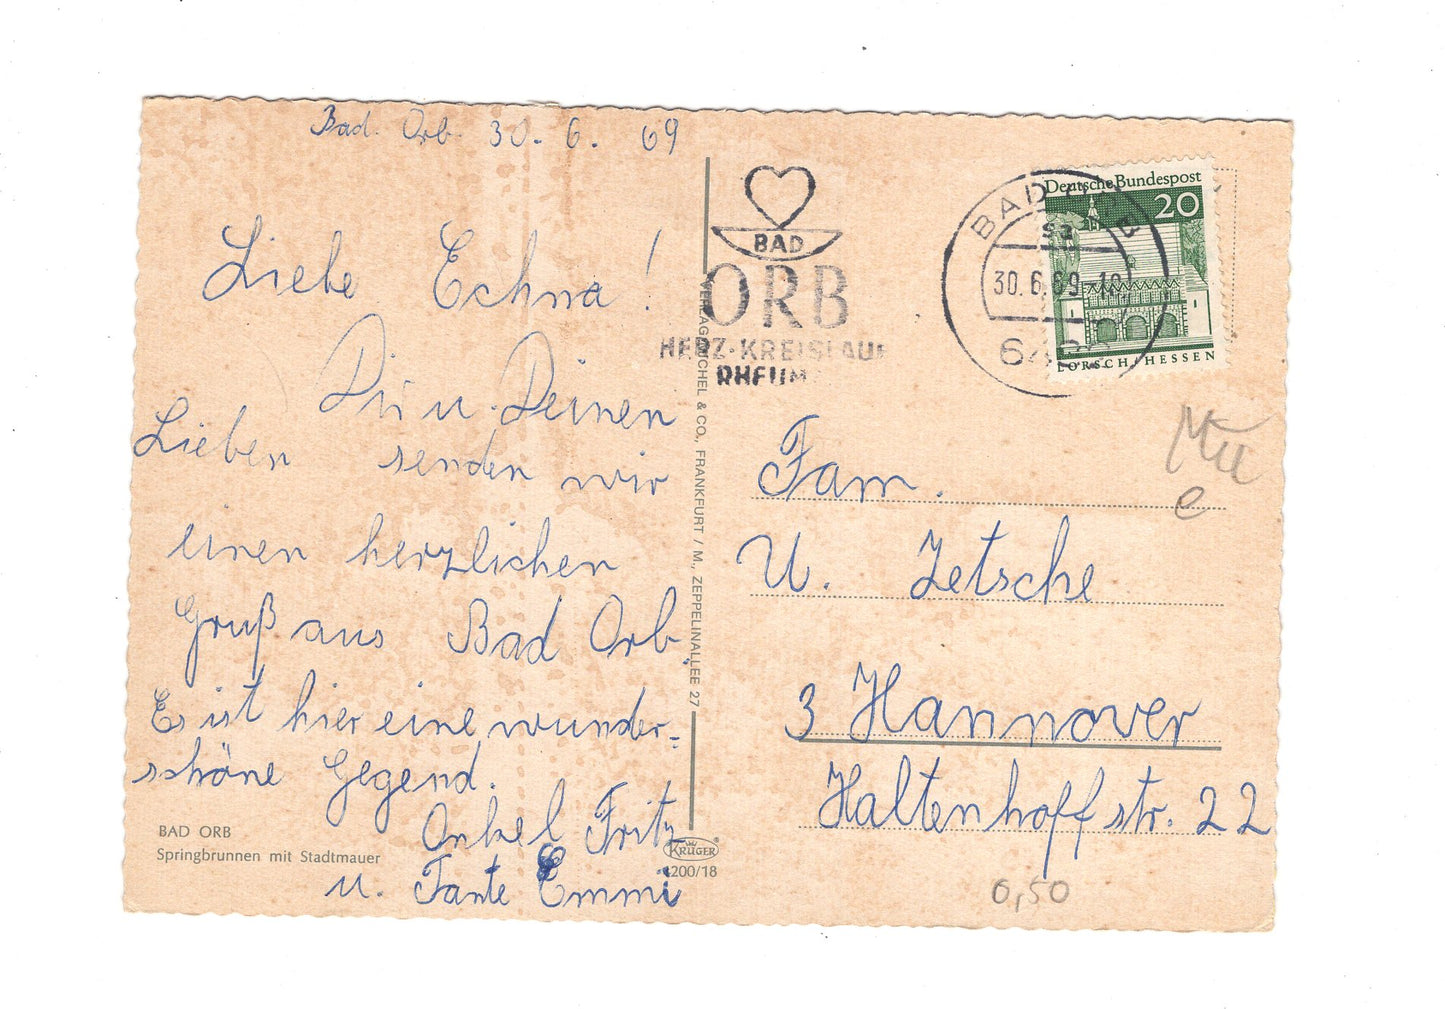 Bad. Orb. 30. 6. 69
Liebe Echna!
Dir u. Deinen
Lieben senden wir
einen herzlichen
Gruß aus Bad Orb.
Es ist hier eine wunder=
schöne Gegend.
Onkel Fritz
u. Tante Emmi
BAD ORB
Springbrunnen mit Stadtmauer
VERLAG MICHEL & CO., FRANKFURT / M., ZEPPELINALLEE 27
KRÜGER
200/18
BAD
ORB
HERZ-KREISLAUF
RHEUMA
BAD ORB
30.6.69
Deutsche Bundespost
20
LORSCH / HESSEN
Fam.
U. Zetsche
3 Hannover
Haltenhoffstr. 22
0,50